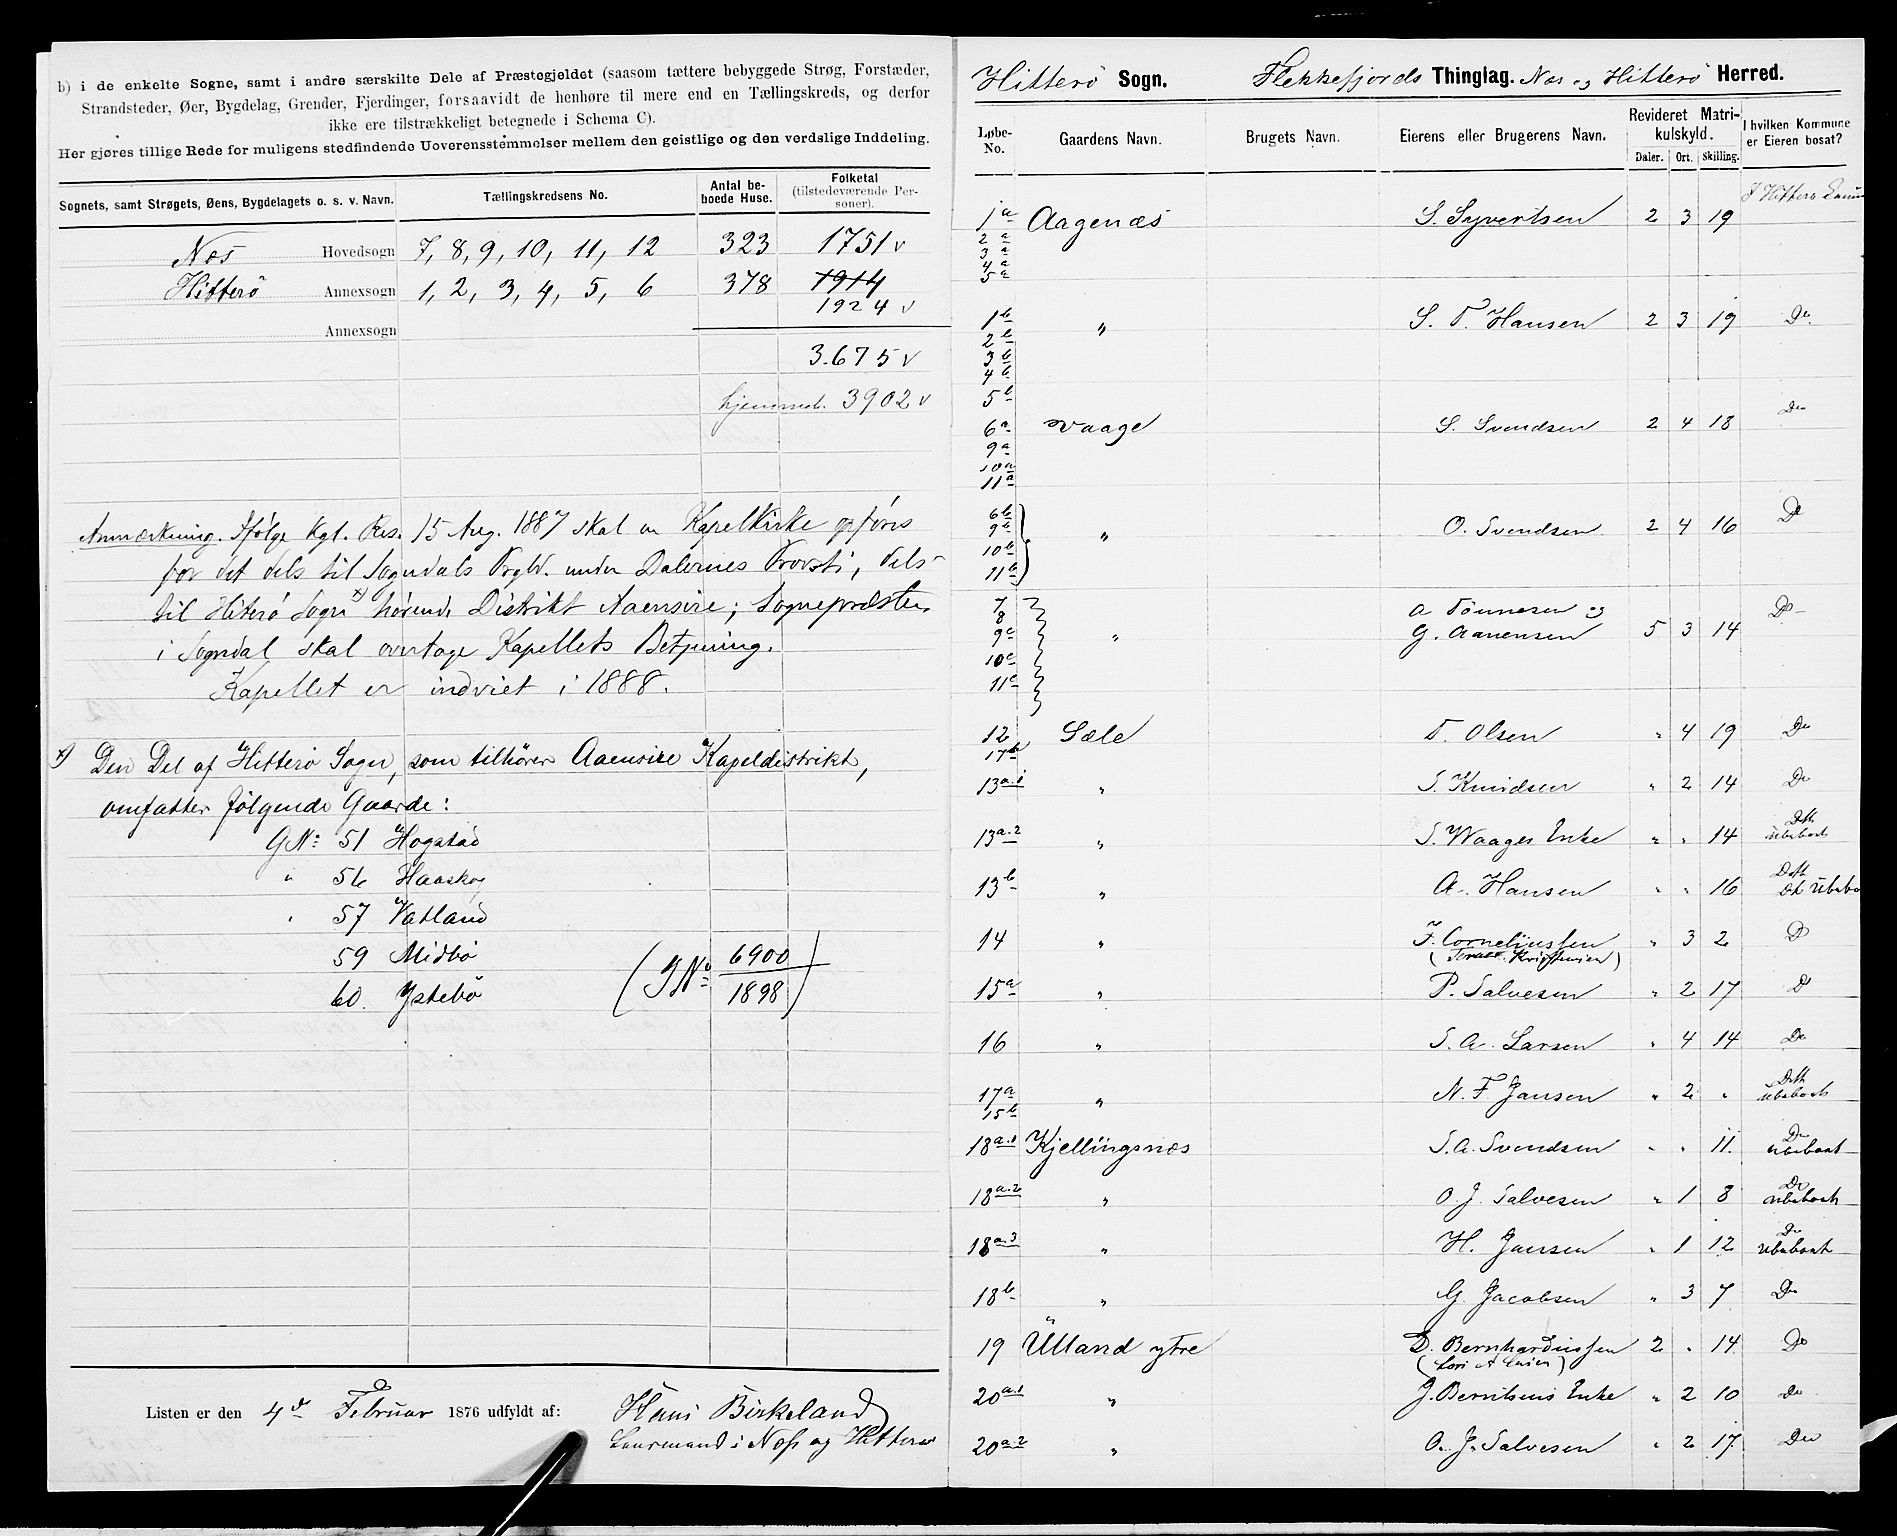 b) i de enkelte Sogne, samt i andre særskilte Dele af Præstegjeldet (saasom tættere bebyggede Strøg, Forstæder,
Strandsteder, Øer, Bygdelag, Grender, Fjerdinger, forsaavidt de henhøre til mere end en Tællingskreds, og derfor
ikke ere tilstrækkeligt betegnede i Schema C).
Her gjøres tillige Rede for muligens stedfindende Uoverensstemmelser mellem den geistlige og den verdslige Inddeling.
Sognets, samt Strøgets, Øens, Bygdelagets o. s. v. Navn. Tællingskredsens No. Antal beboede Huse. Folketal (tilstedeværende Personer).
Nes Hovedsogn 7, 8, 9, 10, 11, 12 323 1751 v
Hitterö Annexsogn 1, 2, 3, 4, 5, 6 378 1914
1924 v
Annexsogn
3.675 v
hjemmeh. 3902 v
Anmærkning. Ifølge Kgl. Res. 15 Aug. 1887 skal en Kapelkirke opføres
for det dels til Sogndals Prgld. under Dalernes Provsti, dels
til Hiterö Sogn x) hørende Distrikt Aaensire; Sognepræsten
i Sogndal skal overtage Kapellets Betjening.
Kapellet er indviet i 1888.
x) Den Del af Hitterö Sogn, som tilhører Aaensire Kapeldistrikt,
omfatter følgende Gaarde:
GNo 51 Hogstad
" 56 Haaskog
" 57 Vatland
59 Midbö
60. Ystebö
(JNo 6900/1898)
Listen er den 4de Februar 1876 udfyldt af: Hans Birkeland
Lensmand i Nes og Hitterø
Hitterö Sogn. Flekkefjords Thinglag. Nes og Hitterö Herred.
Løbe-No. Gaardens Navn. Brugets Navn. Eierens eller Brugerens Navn. Revideret Matrikulskyld. Daler. Ort. Skilling. I hvilken Kommune er Eieren bosat?
1a Aagenæs S. Syvertsen 2 3 19 I Hitterö
2a
3a
4a
5a
1b " S. T. Hansen 2 3 19 Do
2b
3b
4b
5b
6a Vaage S. Svendsen 2 4 18 Do
9a
10a
11a
6b
9b " O. Svendsen 2 4 16 Do
10b
11b
7 A Tönnesen og Do
8
9c " G. Aanensen 5 3 14
10c
11c
12 Sæle T. Olsen " 4 19 Do
17b
13a.1 " S. Knudsen " 2 14 Do
13a.2 " S. Waages Enke " " 14 Ubeboet
13b " A. Hansen " " 16
14 " F. Corneliussen " 3 2 D
15a " P. Salvesen " 2 17 D
16 " S. A. Larsen " 4 14 Do
17a " N. F Jansen " 2 " ubeboet
15b
18a.1 Kjellingsnæs S. A. Svendsen " " 11. Do ubeboet
18a.2 " O. J. Salvesen " 1 8 Do ubeboet
18a.3 " H. Jansen " 1 12 Do ubeboet
18b " G. Jacobsen " 3 7 Do
19 Ülland ytre D. Bernhardussen 2 " 14 Do
20a.1 " J. Berntsens Enke " 2 10 Do
20a.2 " O. J. Salvesen " 2 17. Do